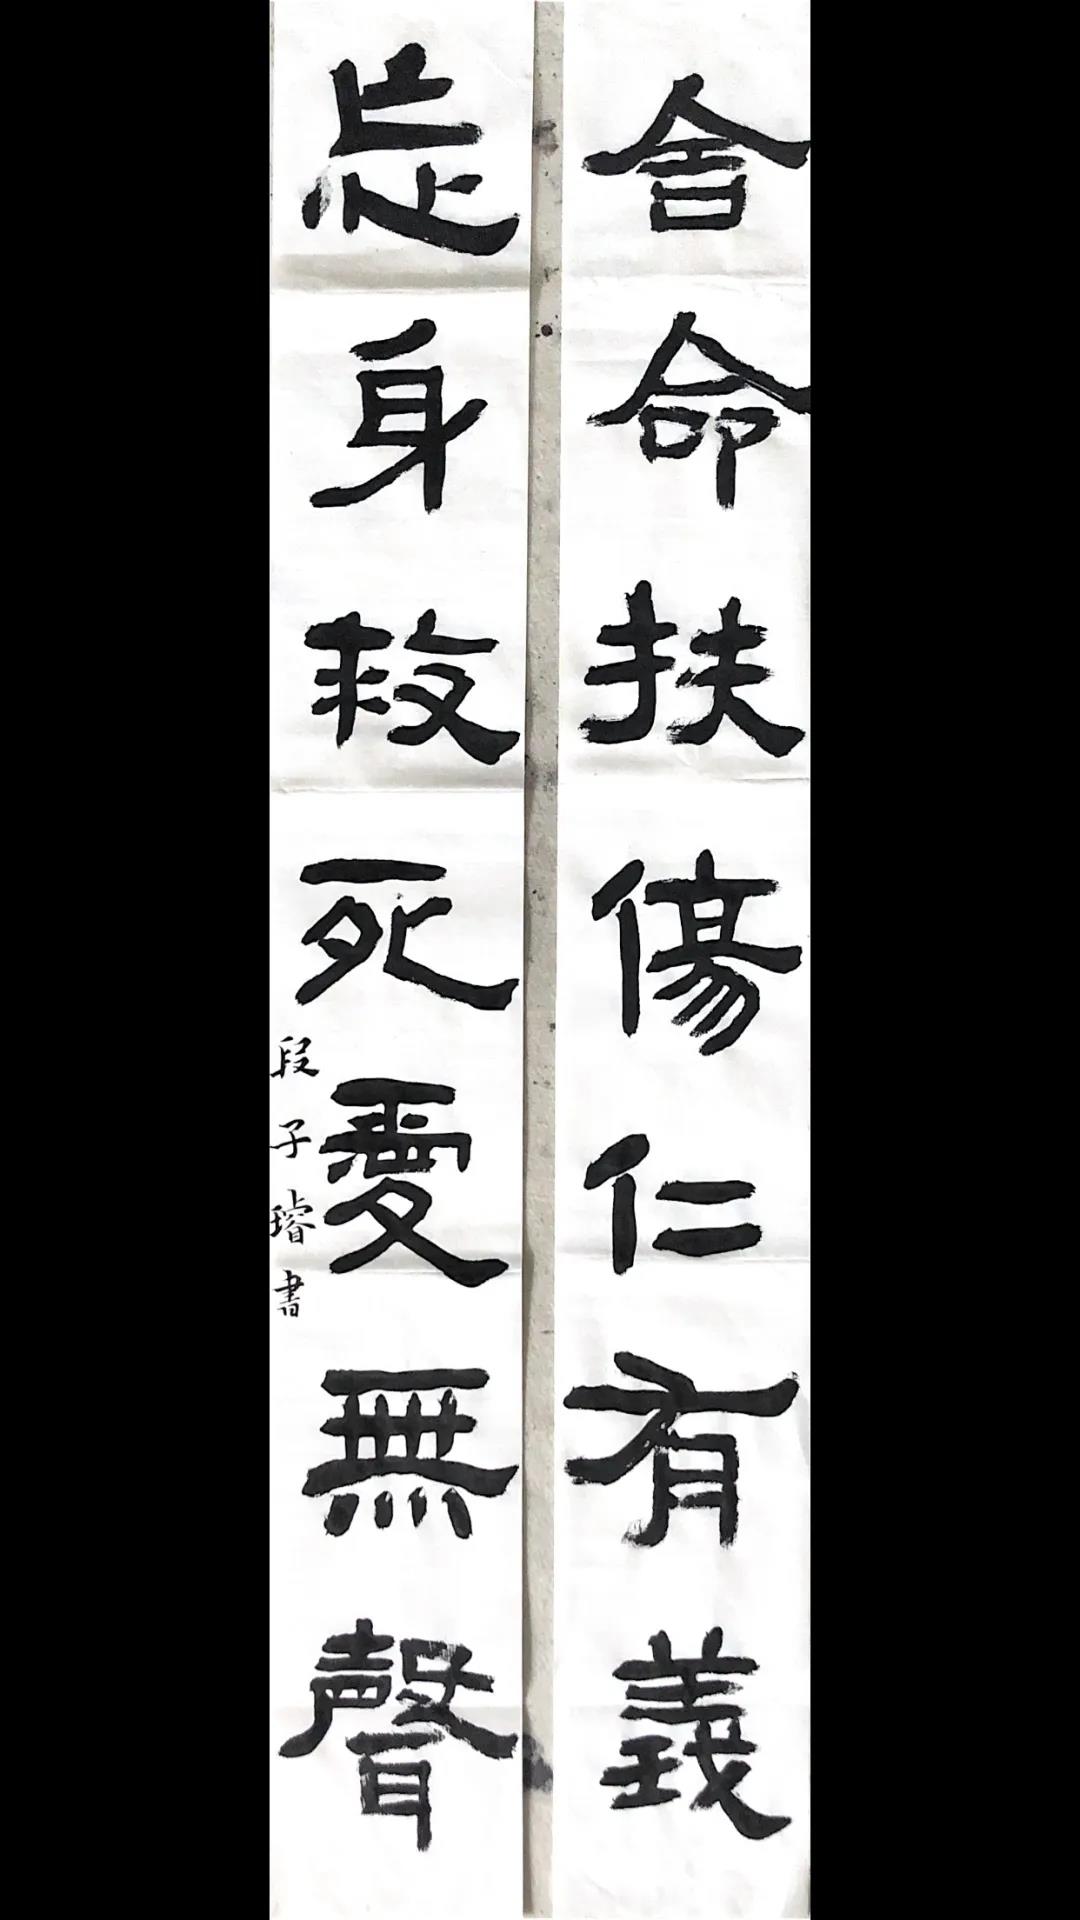 舍命扶傷仁有義
忘身救死愛無聲
段子璿書